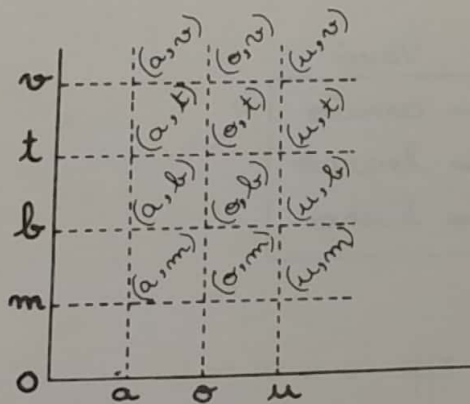 v (a,v) (o,v) (u,v)
t (a,t) (o,t) (u,t)
b (a,b) (o,b) (u,b)
m (a,m) (o,m) (u,m)
O a o u